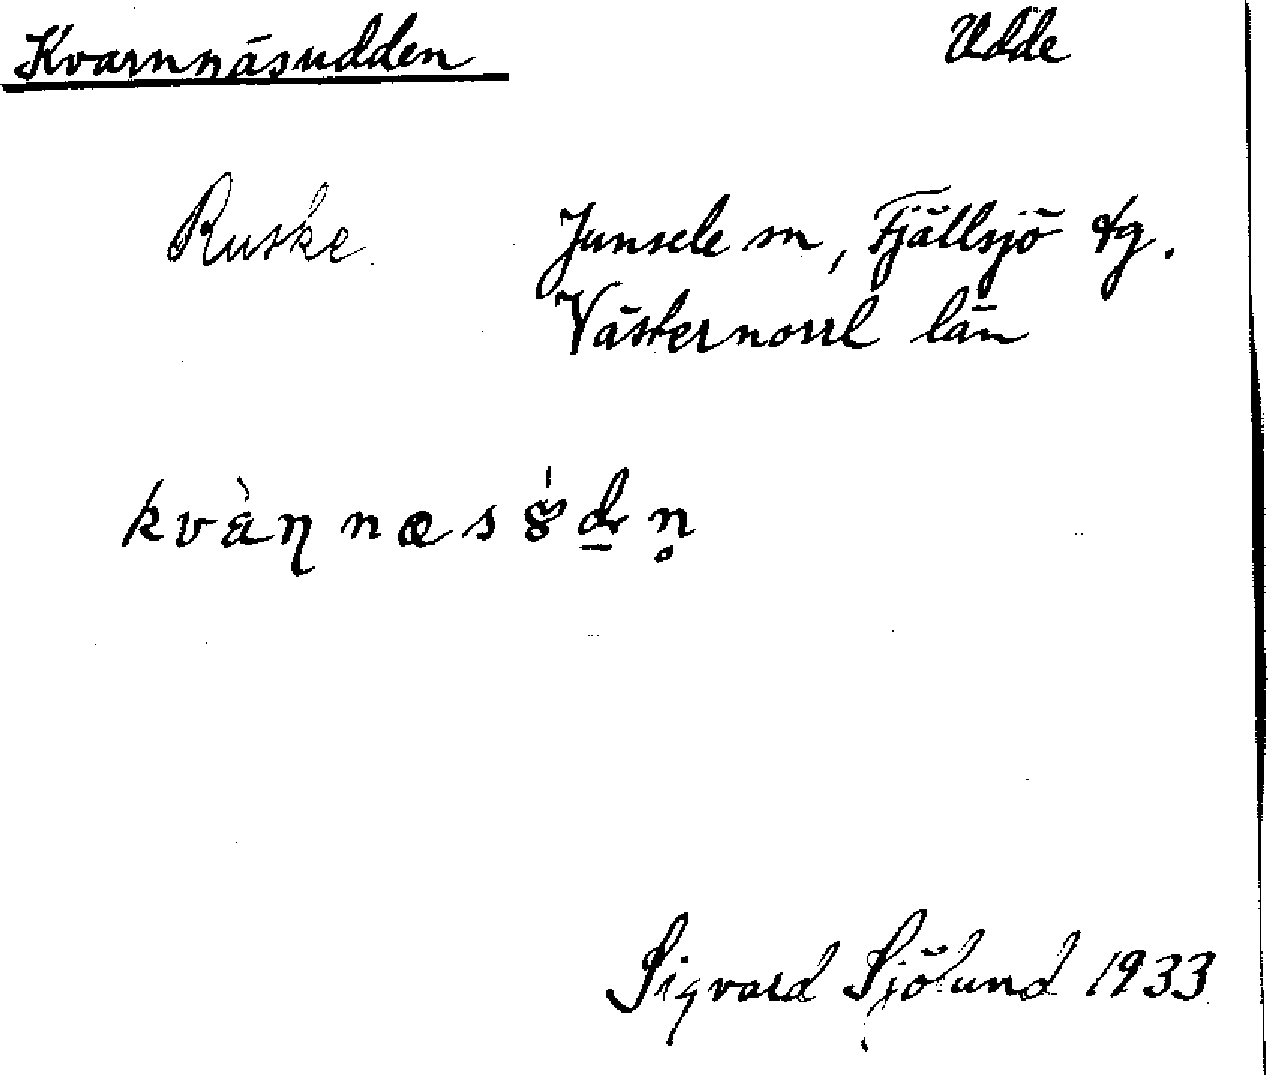 Kvarnnäsudden Udde
Ruske. Junsele sn, Fjällsjö tg.
Västernorrl län
Sigvard Sjölund 1933